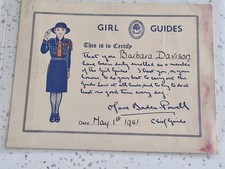 GIRL GUIDES
This is to Certify
that you Barbara Davison
have been duly enrolled as a member
of the Girl Guides. I trust you, on your
honour, to do your best to carry out the
Guide Law at all times and to try to do at
least one good turn every day.
Olave Baden-Powell
Chief Guide
Date May 1st 1941